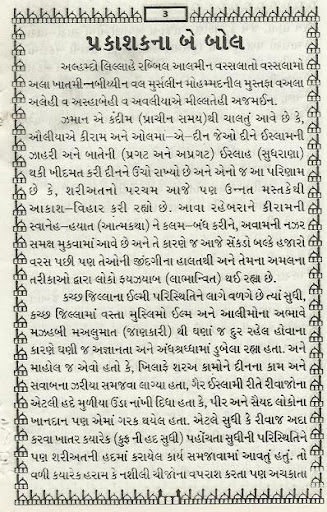 3
પ્રકાશકના બે બોલ
અલ્હમ્દો લિલ્લાહે રબ્બિલ આલમીન વસ્સલાતો વસ્સલામો
અલા ખાતમીનબીય્યીન વલ મુર્સલીન મોહમ્મદનીલ મુસ્તફા વઅલા
અલેહી વ અસ્હાબેહી વ અવલીયાએ મીલ્લતેહી અજમઈન.
ઝમાન એ કદીમ (પ્રાચીન સમય)થી ચાલતું આવે છે કે,
ઓલીયાએ કીરામ અને ઓલમા–એ–દીન જેઓ દીને ઈસ્લામની
ઝાહરી અને બાતેની (પ્રગટ અને અપ્રગટ) ઈસ્લાહ (સુધરાણા)
થકી ખીદમત કરી દીનને ઉંચો રાખ્યો છે અને એનો જ આ પરિણામ
છે કે, શરીઅતનો પરચમ આજે પણ ઉન્નત મસ્તકેથી
આકાશ–વિહાર કરી રહ્યો છે. આવા રહેબરાને કીરામની
સ્વાનેહ–હયાત (આત્મકથા) ને કલમ–બંધ કરીને, અવામની નજર
સમક્ષ મુકવામાં આવે છે અને તે કારણે જ આજે સેંકડો બલ્કે હજારો
વરસ પછી પણ તેઓની જીંદગીના હાલતથી અને તેમના અમલના
તરીકાઓ દ્વારા લોકો ફયઝયાબ (લાભાન્વિત) થઈ રહ્યા છે.
કચ્છ જિલ્લાના ઈલ્મી પરિસ્થિતિને લાગે વળગે છે ત્યાં સુધી,
કચ્છ જિલ્લામાં વસ્તા મુસ્લિમો ઈલ્મ અને આલીમોના અભાવે
મઝહબી મઅલુમાત (જાણકારી) થી ઘણાં જ દુર રહેલ હોવાના
કારણે ઘણી જ અજ્ઞાનતા અને અંધશ્રધ્ધામાં ડુબેલા રહ્યા હતા. અને
માહોલ જ એવો હતો કે, ખિલાફે શરઅ કામોને દીનના કામ અને
સવાબના ઝરીયા સમજવા લાગ્યા હતા, ગૈર ઈસ્લામી રીતે રીવાજોના
એટલી હદે મુળીયા ઉંડા નાંખી દિધા હતા કે, પીર અને સૈયદ લોકોના
ખાનદાન પણ એમાં ગરક થયેલ હતા. એટલે સુધી કે રીવાજ અદા
કરવા ખાતર કયારેક (કુફ્રની હદ સુધી) પહોંચતા સુધીની પરિસ્થિતિને
પણ શરીઅતની હદમાં કરાયેલ કાર્ય સમજવામાં આવતું હતું. તો
વળી કયારેક હરામ કે નશીલી ચીજોના વપરાશ કરતા પણ અચકાતા